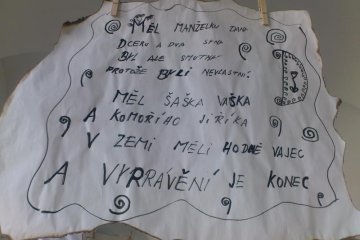 MĚL MANŽELKU TAKY
DCERU A DVA SYNY
BYL ALE SMUTNÝ
PROTOŽE BYLI NEVLASTNÍ.
MĚL ŠAŠKA VAŠKA
A KOMOŘÍHO JIŘÍKA
V ZEMI MĚLI HODNĚ VAJEC
A VYPRÁVĚNÍ JE KONEC